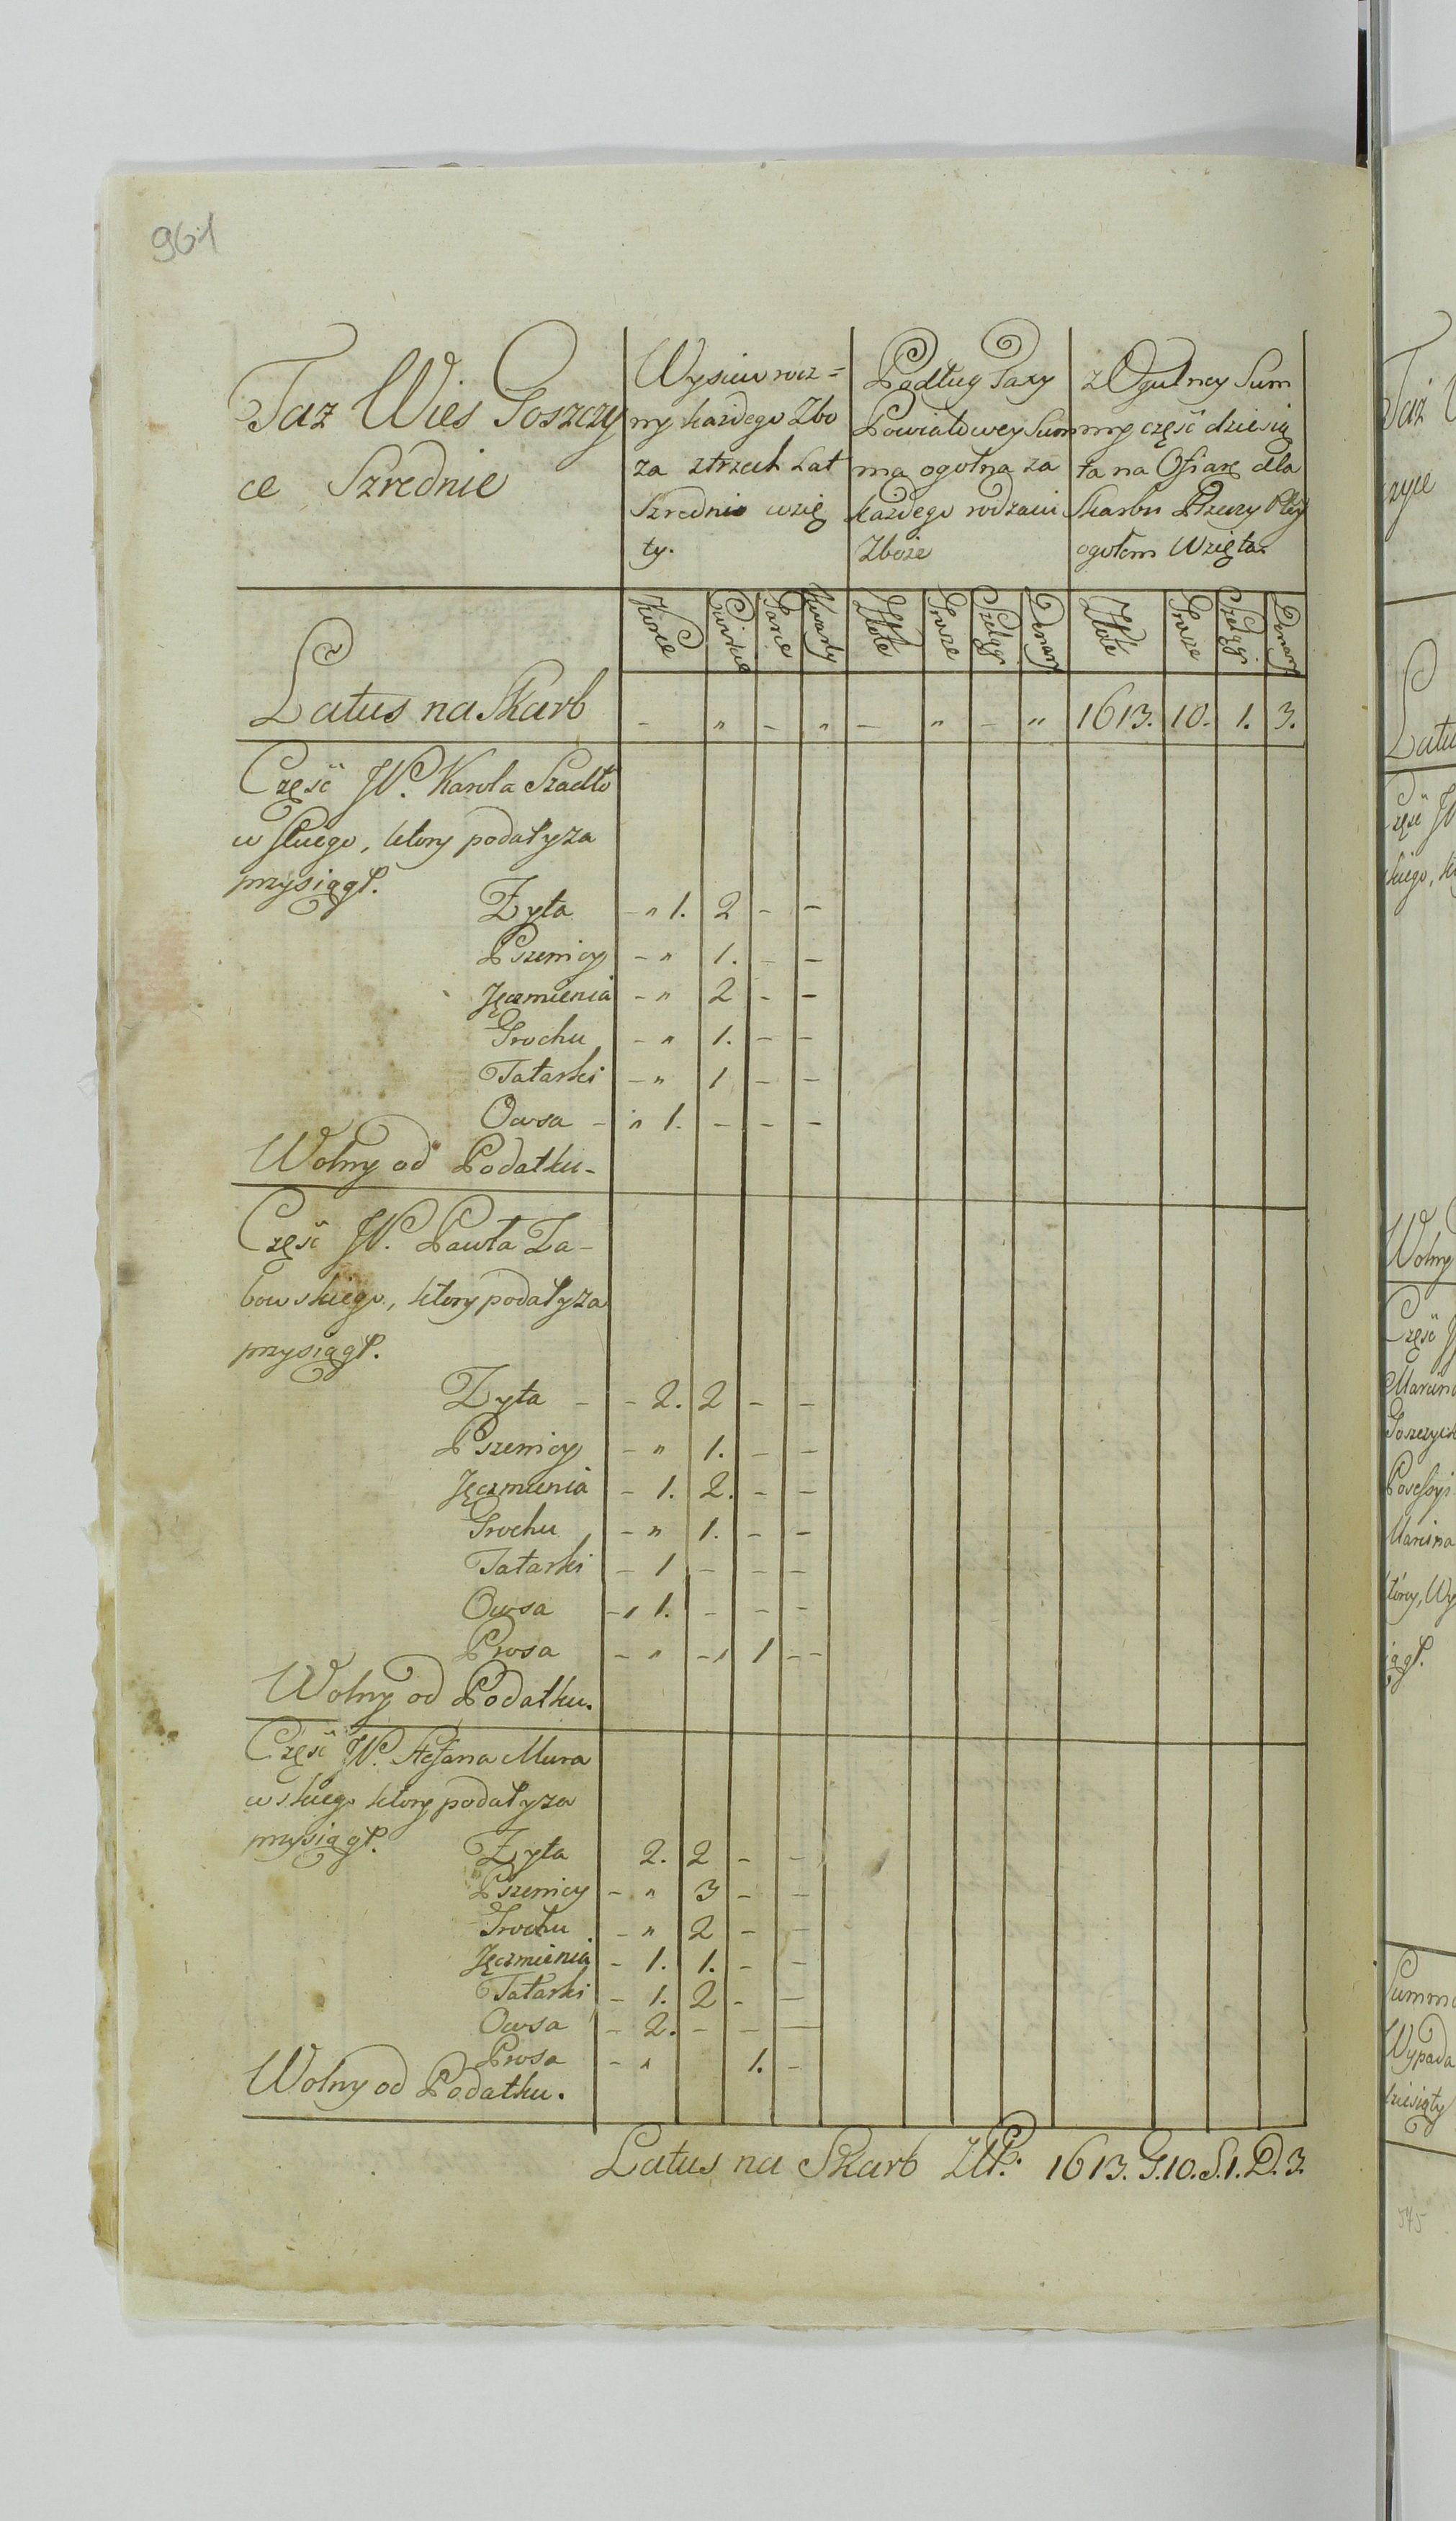 961
Taz Wies Goszczy
ce Szrednie
Wysiew rocz=
ny każdego Zbo
za ztrzech Lat
Szrednio wzię
ty.
Podług Taxy
Powiatowey Sum
ma ogolna za
każdego rodzaiu
Zboże
z Ogulney Sum
my część dziesią
ta na Ofiarę dla
Skarbu Rzeczy Pltey
ogołem Wzięta.
Korce Cwierci Garce Kwarty Złote Grosze Szelągi Denary Złote Grosze Szelągi Denary
Latus na Skarb - " - " - " - " 1613. 10. 1. 3.
Część JP. Karola Szadko
wskiego, ktory podał y za
przysiągł.
Zyta - " 1. 2 - -
Pszenicy - " 1. - -
Jęczmienia - " 2 - -
Grochu - " 1. - -
Tatarki - " 1 - -
Owsa - " 1. - - -
Wolny od Podatku -
Część JP. Pawła Za-
bowskiego, ktory podał y za
przysiągł.
Zyta - - 2. 2 - -
Pszenicy - " 1. - -
Jęczmienia - 1. 2. - -
Grochu - " 1. - -
Tatarki - 1 - - -
Owsa - " 1. - - -
Prosa - " - " 1 - -
Wolny od Podatku.
Część JP. Stefana Mura
wskiego ktory podał y za
przysiągł.
Zyta 2. 2 - -
Pszenicy - " 3 - -
Grochu - " 2 - -
Jęczmienia - 1. 1. - -
Tatarki - 1. 2 - -
Owsa - 2. - - -
Prosa - " 1. -
Wolny od Podatku.
Latus na Skarb ZłP. 1613. G. 10. S. 1. D. 3.